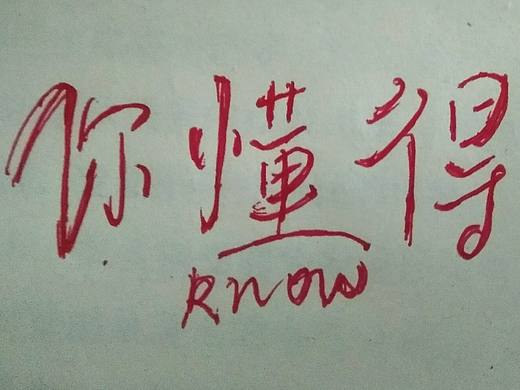 你懂得
know